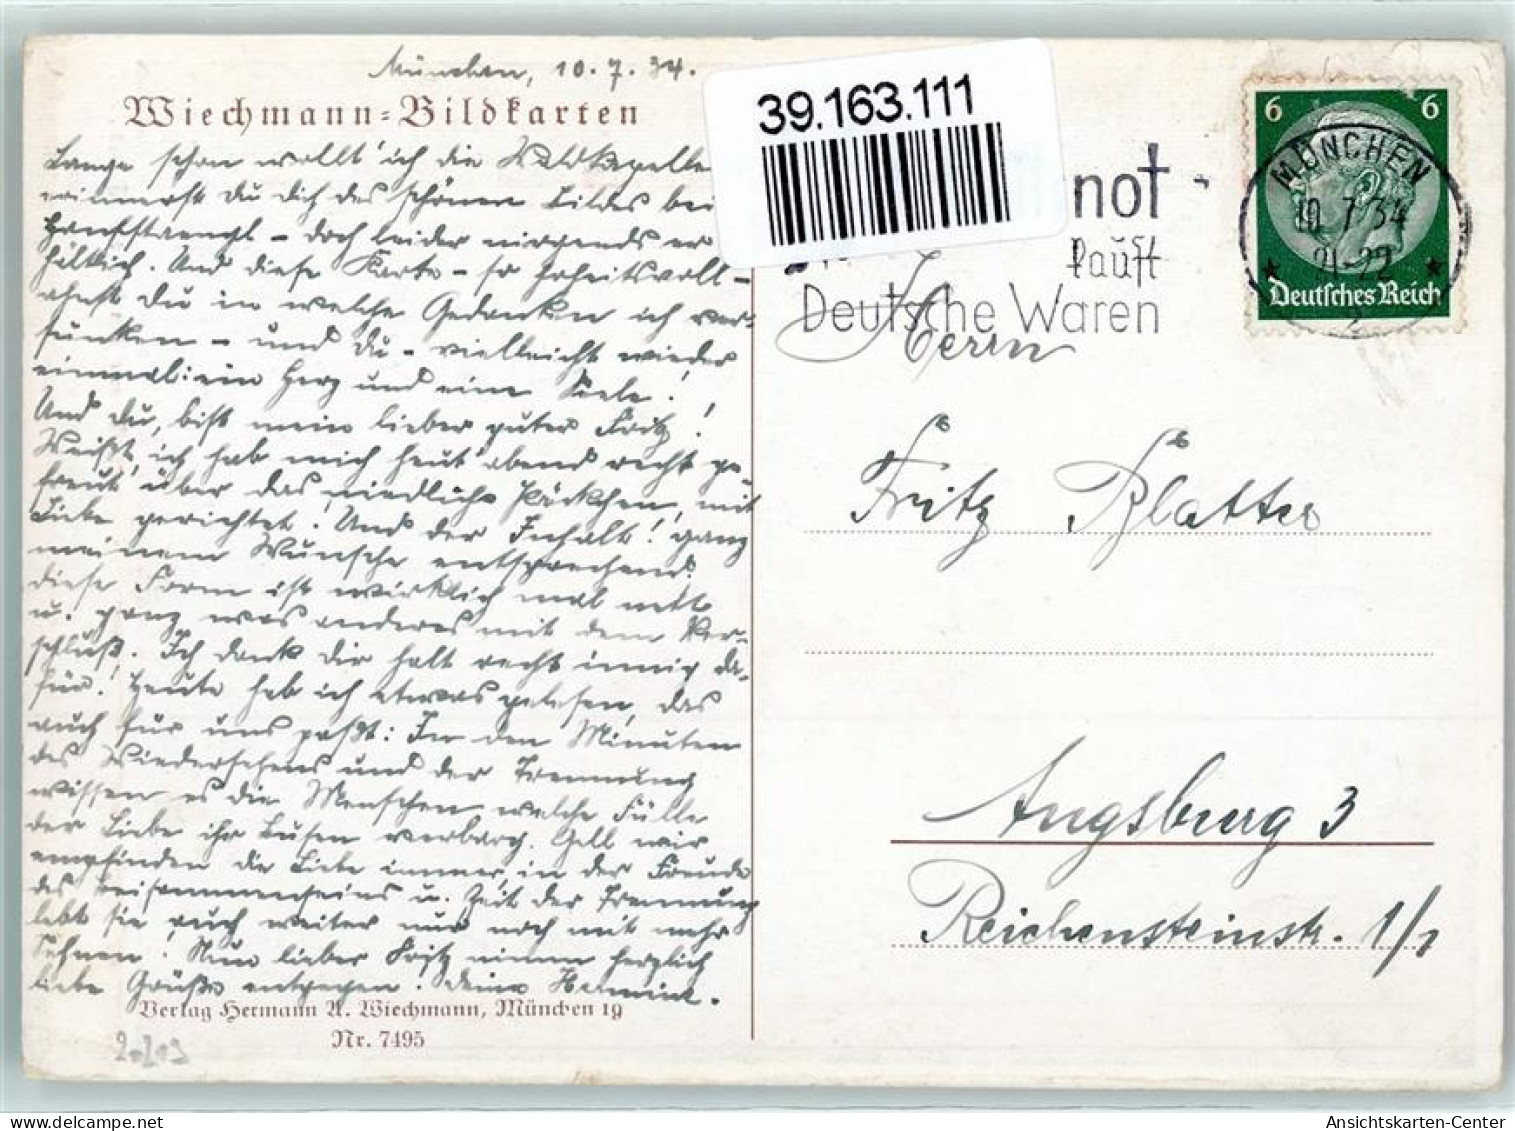 München, 10. 7. 34.
Wiechmann=Bildkarten
Lange schon wollt' ich die Waldkapelle
erinnerst Du dich des schönen Bildes bei
Hanfstaengl – doch leider nirgends er
hältlich. Und diese Karte – so hoheitsvoll –
ahnst Du in welche Gedanken ich ver-
sunken – und Du – vielleicht wieder
einmal: ein Herz und eine Seele!
Und Du, bist mein lieber guter Fritz!
Weißt', ich hab mich heut' abend recht ge-
freut' über das niedliche Päckchen, mit
Liebe gerichtet! Und der Inhalt! ganz
meinem Wunsche entsprechend.
diese Form ist wirklich mal nett
u. ganz was anderes mit dem Ver-
schluß. Ich dank dir halt recht innig da-
für! Heute hab ich etwas gelesen, das
auch für uns paßt: In den Minuten
des Wiedersehens und der Trennung
wissen es die Menschen welche Fülle
der Liebe ihr Busen verbarg. Gell wir
empfinden die Liebe immer, in der Freude
des Beisammenseins u. Zeit der Trennung
lebt sie auch weiter nur noch mit mehr
Sehnen! Nun lieber Fritz nimm herzlich
liebe Grüße entgegen. deine
Verlag Hermann A. Wiechmann, München 19
Nr. 7495
39.163.111
not
kauft
Deutsche Waren
6 6
MÜNCHEN
10. 7. 34
21-22
2
Deutsches Reich
Herrn
Fritz Blatter
Augsburg 3
Reichensteinstr. 1/1
Ansichtskarten-Center